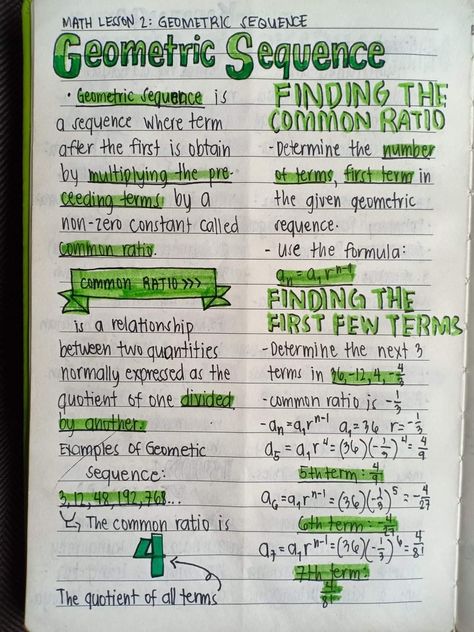 MATH LESSON 2: GEOMETRIC SEQUENCE
GEOMETRIC SEQUENCE
• Geometric sequence is
a sequence where term
after the first is obtain
by multiplying the pre-
ceeding terms by a
non-zero constant called
common ratio.
COMMON RATIO >>>
is a relationship
between two quantities
normally expressed as the
quotient of one divided
by another.
Examples of Geometic
sequence:
3, 12, 48, 192, 768...
The common ratio is
4
The quotient of all terms
FINDING THE
COMMON RATIO
- Determine the number
of terms, first term in
the given geometric
sequence.
- Use the formula:
aₙ = a₁rⁿ⁻¹
FINDING THE
FIRST FEW TERMS
- Determine the next 3
terms in 36, -12, 4, -4/3
- common ratio is -1/3
- aₙ = a₁rⁿ⁻¹ a₁ = 36 r = -1/3
a₅ = a₁r⁴ = (36)(-1/3)⁴ = 4/9
5th term: 4/9
a₆ = a₁rⁿ⁻¹ = (36)(-1/3)⁵ = -4/27
6th term: -4/27
a₇ = a₁rⁿ⁻¹ = (36)(-1/3)⁶ = 4/81
7th term:
4/81